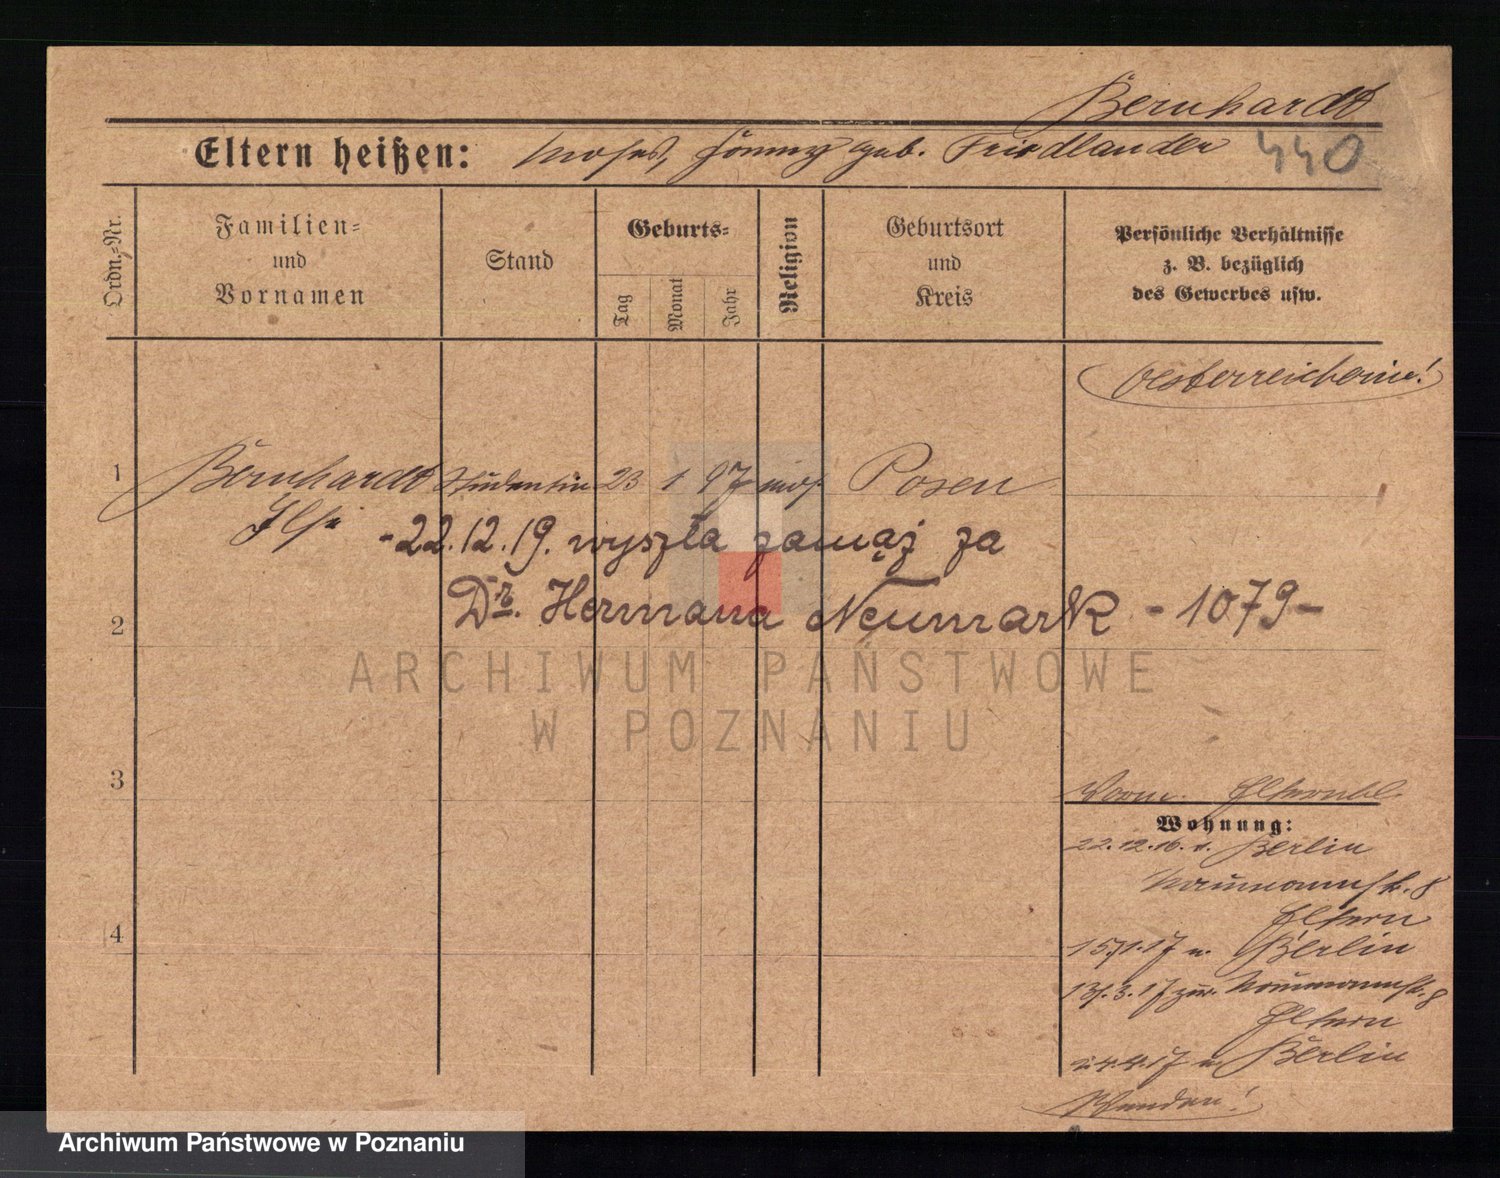 Bernhardt
Eltern heißen: Moses, Jenny geb. Friedlander
440
Ordn.-Nr.
Familien-
und
Vornamen
Stand
Geburts-
Tag
Monat
Jahr
Religion
Geburtsort
und
Kreis
Persönliche Verhältnisse
z. B. bezüglich
des Gewerbes usw.
Oesterreicherin!
1 Bernhardt Studentin 23 1 97 mos. Posen
Ilse
-22.12.19. wyszła zamąż za
2 Dr. Hermana Neumark - 1079 -
ARCHIWUM PAŃSTWOWE
W POZNANIU
3
Vorm. Elternbl.
Wohnung:
22.12.16. v. Berlin
Naumannstr. 8
4 Eltern
15/1.17 n. Berlin
13/.3.17 zur. Naumannstr. 8
Eltern
24.4.17 n Berlin
Wenden!
Archiwum Państwowe w Poznaniu